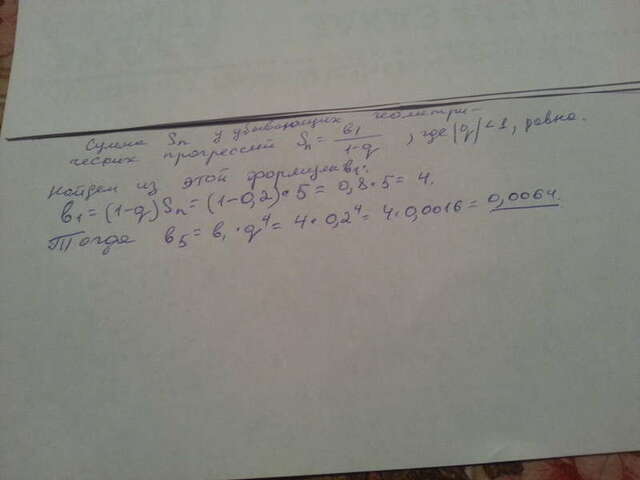 Сумма Sₙ у убывающих геометри-
ческих прогрессий Sₙ = в₁/(1-q), где |q|<1, равна.
Найдем из этой формулы в₁:
в₁ = (1-q)Sₙ = (1-0,2)·5 = 0,8·5 = 4.
Тогда в₅ = в₁·q⁴ = 4·0,2⁴ = 4·0,0016 = 0,0064.